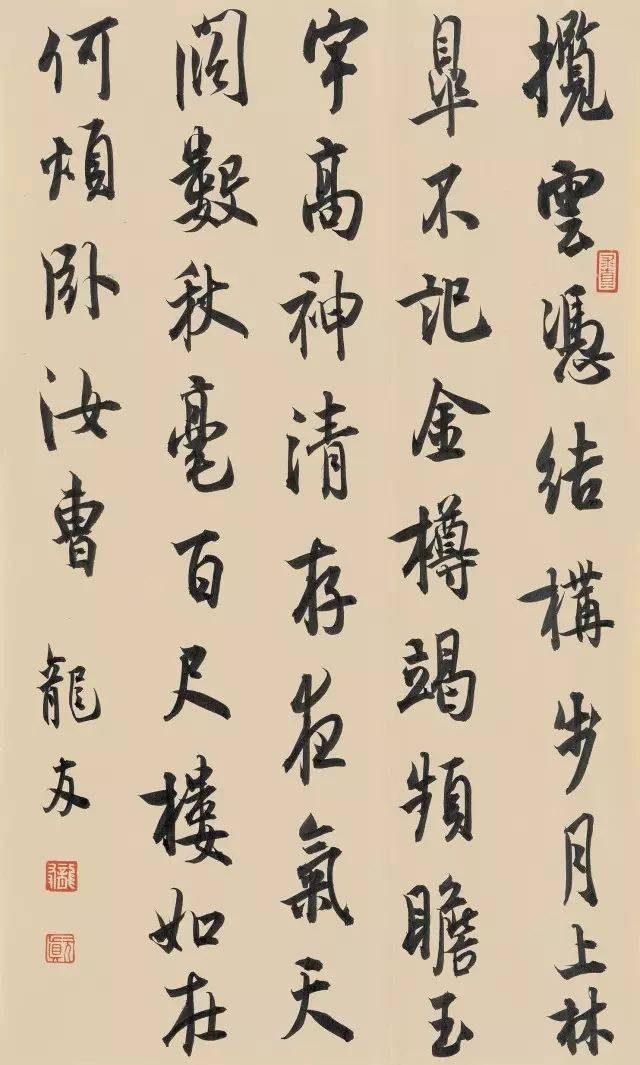 攬雲憑結構步月上林
皐不記金樽竭頻瞻玉
宇高神清存夜氣天
闊數秋毫百尺樓如在
何煩臥汝曹
龍友